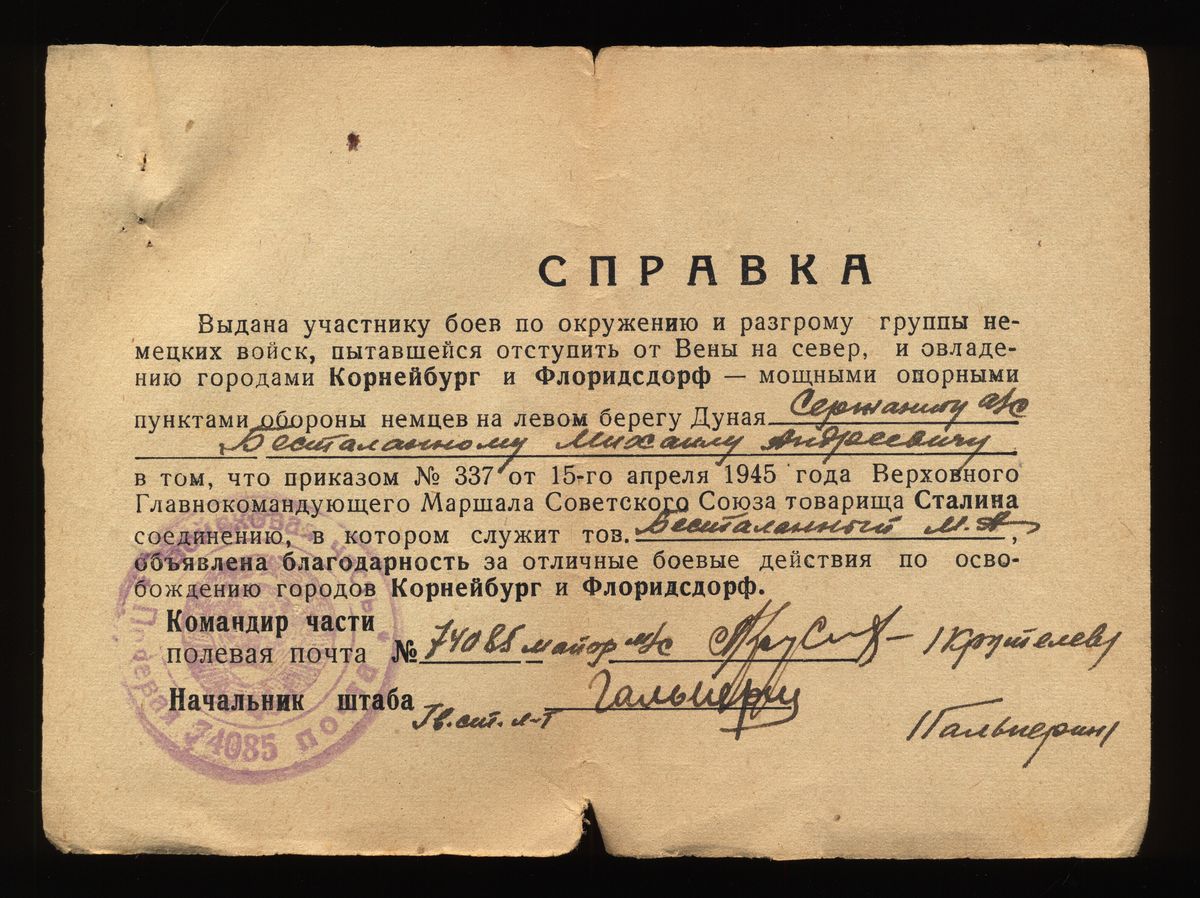 СПРАВКА
Выдана участнику боев по окружению и разгрому группы не-
мецких войск, пытавшейся отступить от Вены на север, и овладе-
нию городами Корнейбург и Флоридсдорф — мощными опорными
пунктами обороны немцев на левом берегу Дуная Сержанту а/с
Бесталанному Михаилу Андреевичу
в том, что приказом № 337 от 15-го апреля 1945 года Верховного
Главнокомандующего Маршала Советского Союза товарища Сталина
соединению, в котором служит тов. Бесталанный М. А,
объявлена благодарность за отличные боевые действия по осво-
бождению городов Корнейбург и Флоридсдорф.
Командир части
полевая почта № 74085 майор /Крутелев/
Начальник штаба Гальперин
Гв. ст. л-т /Гальперин/
Войсковая часть Полевая почта 74085